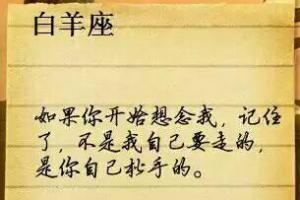 白羊座
如果你开始想念我，记住
了，不是我自己要走的，
是你自己松手的。